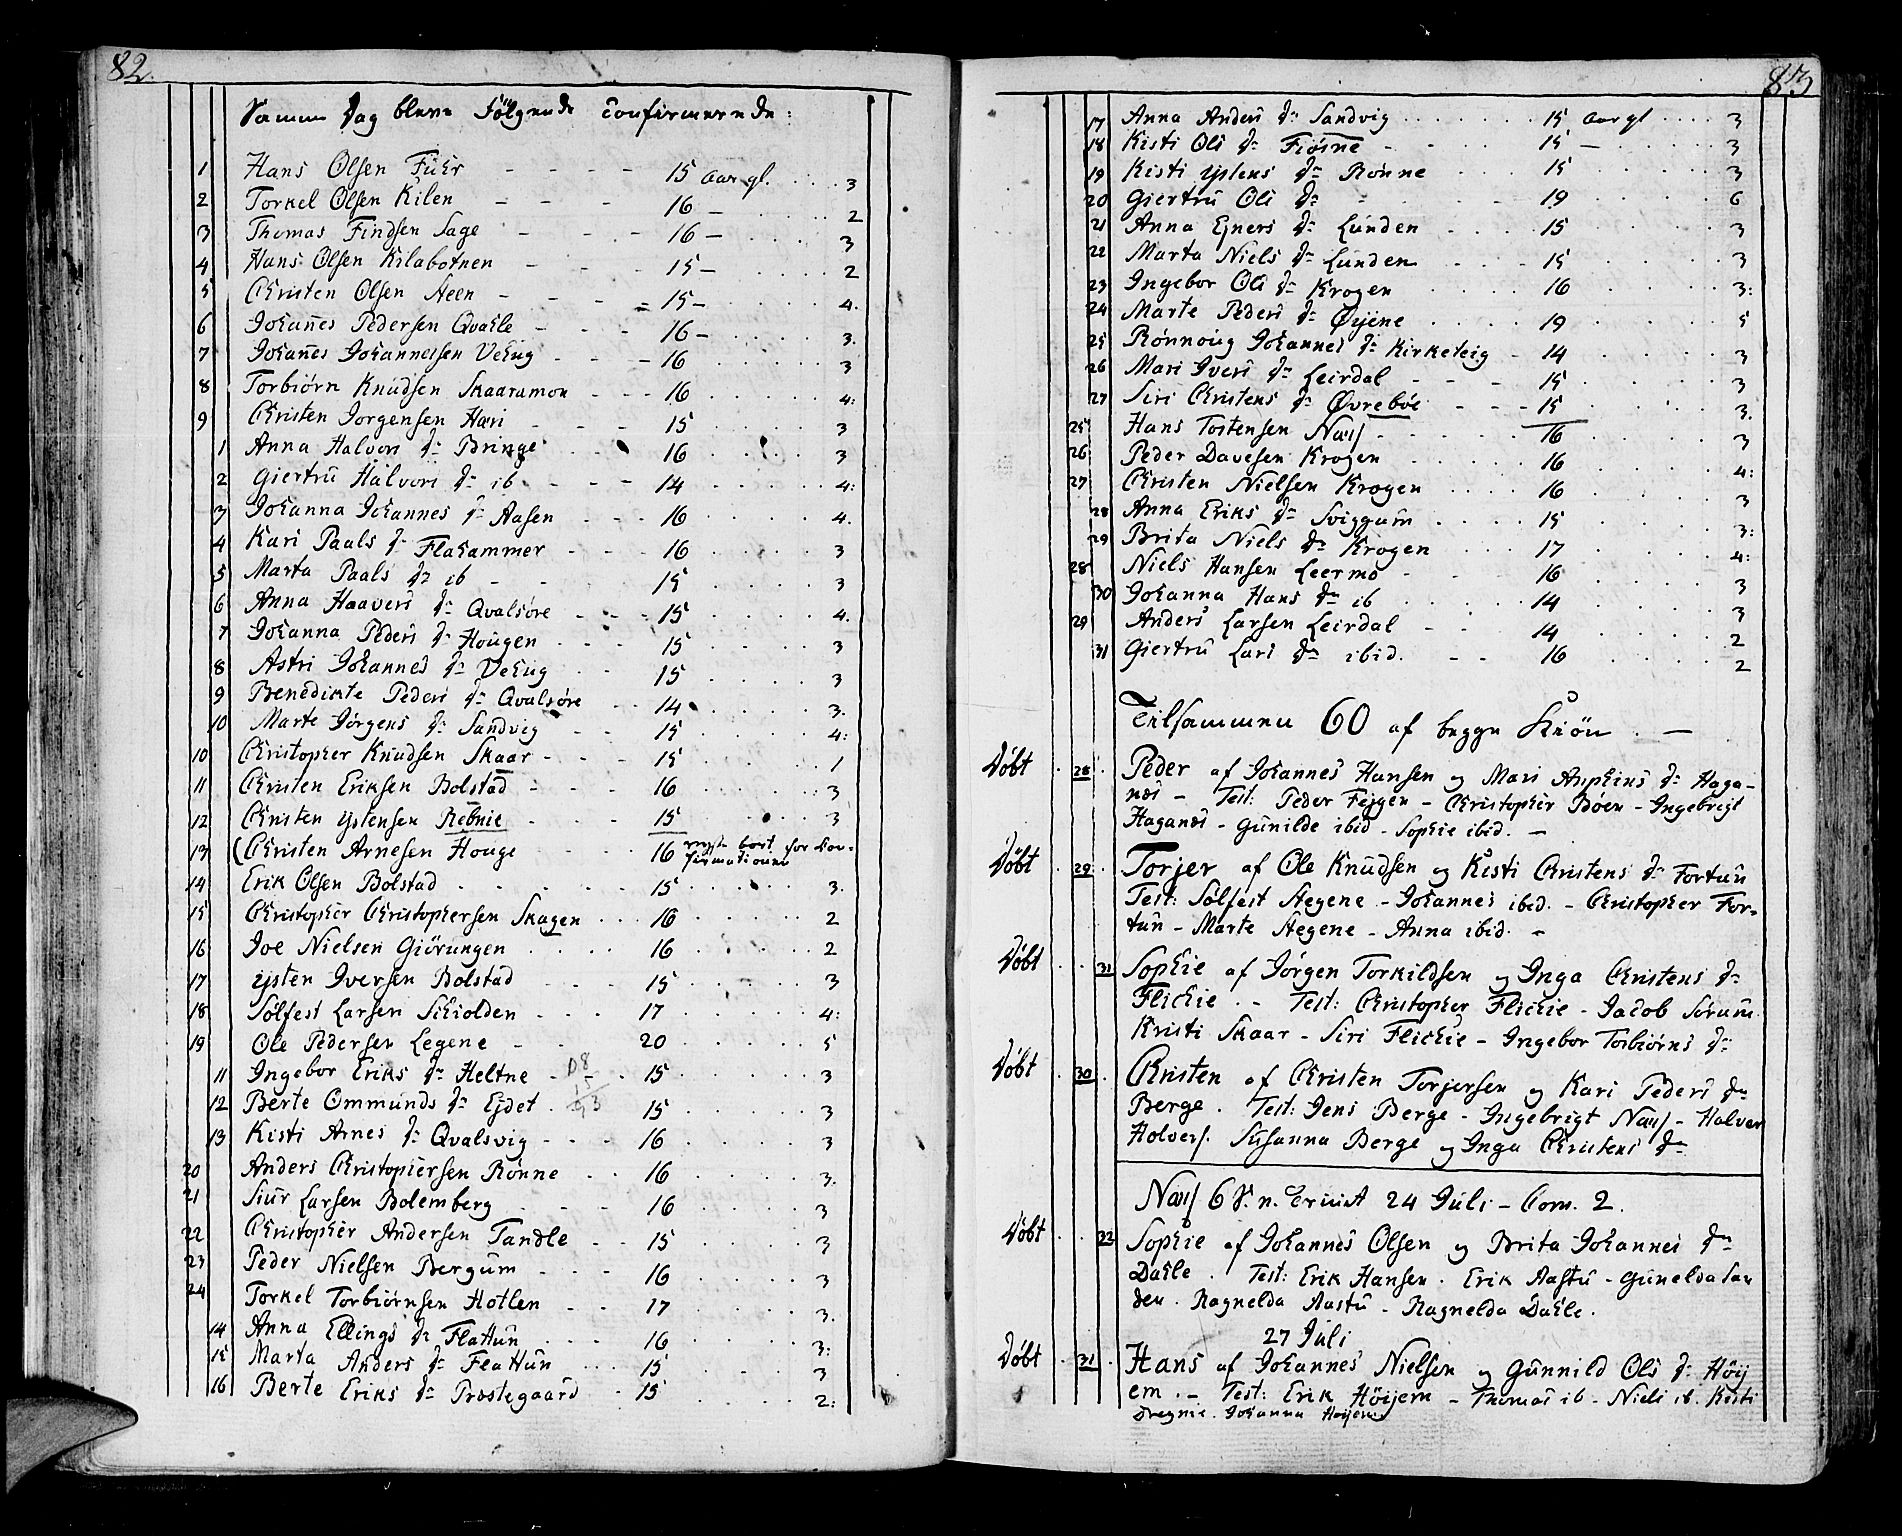 82.
Samme Dag bleve følgende Confirmerede:
1 Hans Olsen Fuhr - - - - 15 aar gl. .... 3
2 Torkel Olsen Kilen - - - 16 - ..... 2
3 Thomas Findsen Sage - - - 16 - .... 3
4 Hans Olsen Kilabotnen - - - 15 - .... 2
5 Christen Olsen Steen - - - 15 - .... 4.
6 Johañes Pedersen Qvahle - - - 16 - .... 3.
7 Johañes Johannessen Vehug - - - 16 .... 3
8 Torbiørn Knudsen Skaaramon - - - 16 .... 4:
9 Christen Jorgensen Hæri - - - 15 .... 3
1 Anna Halvors dr Bringe - - 16 .... 3
2 Giertru Halvors dr ib - - - 14 .... 4:
3 Johanna Johannes dr Aasen - - - 16 .... 4.
4 Kari Paals dr Flahammer - - - 16 .... 3
5 Marta Paals dr ib - - 15 .... 3
6 Anna Haavers dr Qvalsøre - - - 15 .... 4.
7 Johanna Peders dr Hougen - - - 15 .... 3
8 Astri Johannes dr Vehug - - - 15 .... 3
9 Benedikte Peders dr Qvalsøre - - 14 .... 3.
10 Marte Jørgens dr Sandvig - - 15 .... 4:
10 Christopher Knudsen Skaar - - - 15 .... 1
11 Christen Eriksen Bolstad - - - 16 .... 3
12 Christen Ystensen Rebnie - - - 15 .... 3
13 (Christen Arnesen Houge - - - 16 reyste bort for Con-
firmationen
14 Erik Olsen Bolstad .... 15 .... 3.
15 Christopher Christophersen Skagen ... 16 .... 2
16 Joe Nielsen Giørungen .... 16 .... 2
17 Ysten Iversen Bolstad - - - 15 .... 3
18 Sølfest Larsen Schiolden - - - 17 .... 4:
19 Ole Pedersen Legene - - 20 .... 5
11 Ingebor Eriks dr Heltne - - - 15 .... 3
12 Berte Ommunds dr Ejdet . 15 .... 3
13 Kisti Arnes dr Qvalsvig - - - 16 .... 3
20 Anders Christophersen Rønne - - 16 .... 3.
21 Siur Larsen Bolemberg - - - 16 .... 3
22 Christopher Andersen Tandle - - 15 .... 3
23 Peder Nielsen Bergum - - - 16 .... 3
24 Torkel Torbiørnsen Hotlen - - 17 .... 3.
14 Anna Ellings dr Flattun .... 16 .... 3:
15 Marta Anders dr Flattun ... 15 .... 3
16 Berte Eriks dr Præstegaard - 15 .... 2:
83
17 Anna Anders dr Sandvig ....... 15 aar gl .... 3
18 Kisti Ols dr Fiøsne - - - 15 - .... 3
19 Kisti Ystens dr Rønne ... 15 .... 3
20 Giertru Ols dr - - - 19 .... 6
21 Anna Ejners dr Lunden .... 15 .... 3
22 Marta Niels dr Lunden - - - 15 .... 3
23 Ingebor Ols dr Krogen .... 16 .... 3:
24 Marte Peders dr Øyene .... 19 .... 5
25 Rønnoug Johannes dr Kirketeig - 14 .... 3
26 Mari Ivers dr Leirdal - - - 15 .... 3
27 Siri Christens dr Øvrebøe - - - 15 .... 3.
25 Hans Tostensen Næss - .... 16 .... 3
26 Peder Davesen Krogen .... 16 .... 4:
27 Christen Nielsen Krogen .... 16 .... 3
28 Anna Eriks dr Sviggum .... 15 .... 3:
29 Brita Niels dr Krogen .... 17 .... 4:
28 Niels Hansen Leermo - - 16 .... 3
30 Johanna Hans dr ib .... 14 .... 3
29 Anders Larsen Leirdal - - 14 .... 2
31 Giertru Lars dr ibid. - - 16 .... 2
Tilsammen 60 af begge Kiøn . -
Døbt . 28 . Peder af Johannes Hansen og Mari Anphins dr Haga-
næs - Test: Peder Fejgen - Christopher Bøen - Ingebrigt
Haganæs - Gunilde ibid - Sophie ibid. -
Døbt . 29 . Torjer af Ole Knudsen og Kisti Christens dr Fortun
Test: Sølfest Stegene - Johannes ibid. - Christopher For-
tun - Marte Stegene - Anna ibid. -
Døbt . . 31 Sophie af Jørgen Torkildsen og Inga Christens dr
Flichie . - Test: Christopher Flichie - Jacob Sørum
Kristi Skaar - Siri Flichie - Ingebor Torbiørns dr
Døbt . 30 . Christen af Christen Torjersen og Kari Peders dr
Berge . Test: Jens Berge - Ingebrigt Næss - Halvor
Holvers. Susanna Berge og Inga Christens dr
Næss 6 S. n. Trinit 24 Juli - Com. 2.
Døbt . . 32 Sophie af Johannes Olsen og Brita Johannes dr
Dahle . Test: Erik Hansen . Erik Aastu - Gunelda San
den . Ragnelda Aastu - Ragnelda Dahle.
27 Juli
Døbt . 31 . Hans af Johannes Nielsen og Gunnild Ols dr Høij
em . - Test: Erik Høijem - Thomas ib - Niels ib. Kisti
Dregnie . Johanna Høijem